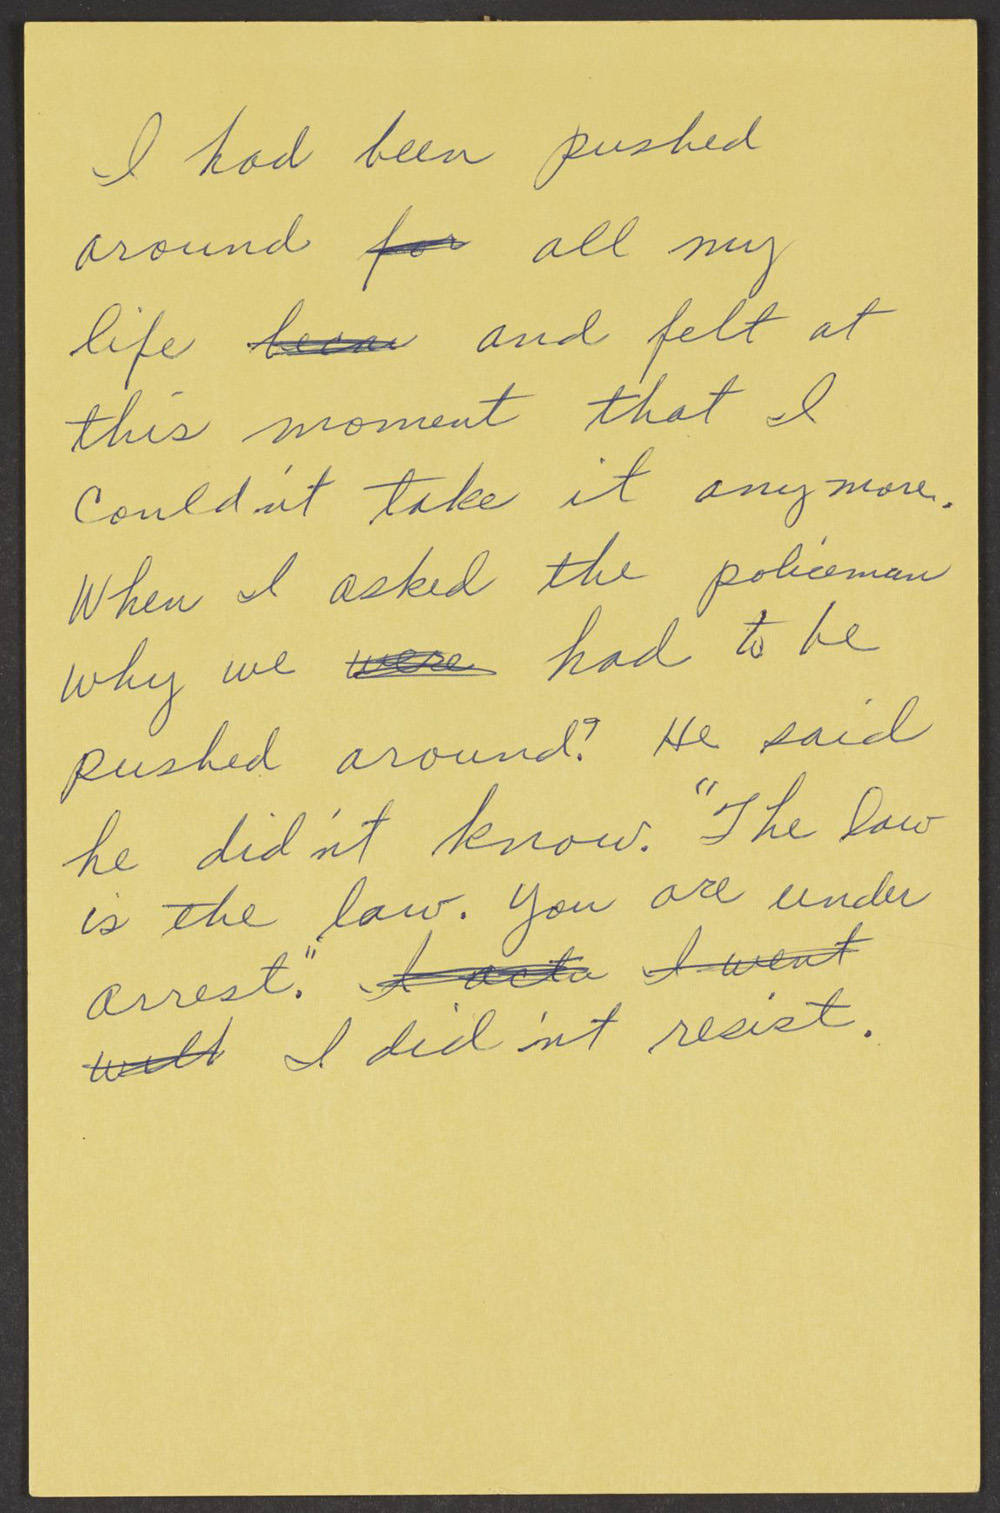 I had been pushed
around for all my
life becau and felt at
this moment that I
could'nt take it anymore.
When I asked the policeman
why we were had to be
pushed around? He said
he did'nt know. "The law
is the law. You are under
arrest." I I went
I did'nt resist.